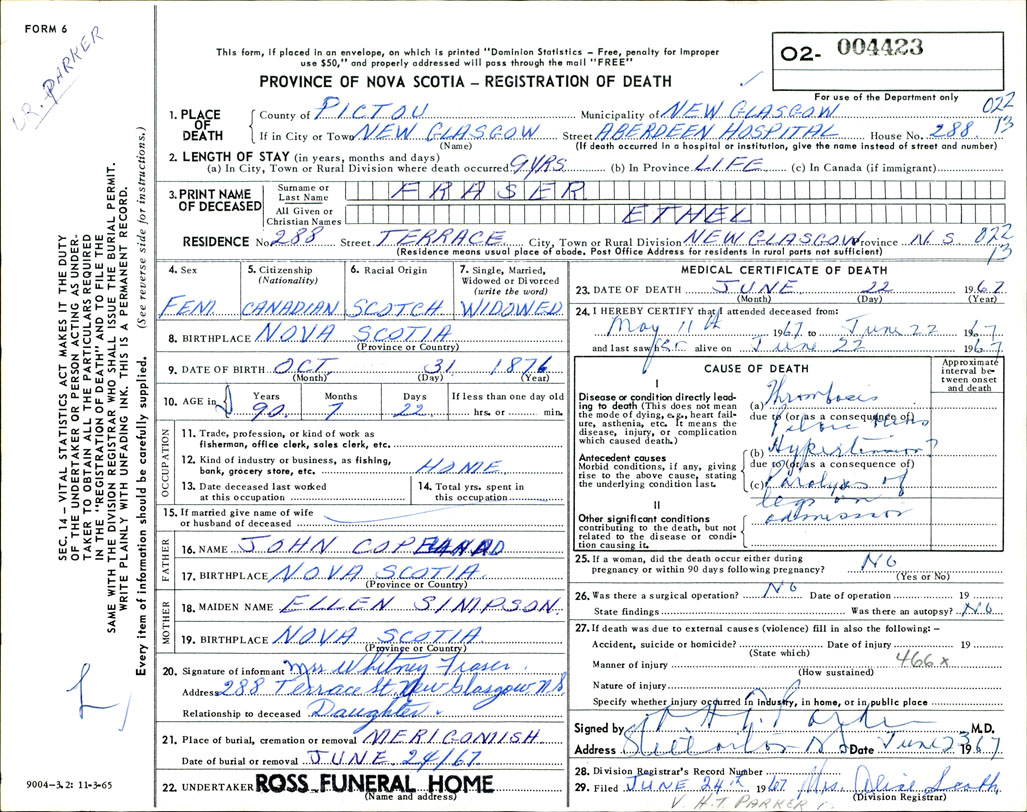 FORM 6
DR. PARKER
This form, if placed in an envelope, on which is printed "Dominion Statistics – Free, penalty for improper
use $50," and properly addressed will pass through the mail "FREE"
PROVINCE OF NOVA SCOTIA – REGISTRATION OF DEATH
02- 004423
For use of the Department only
022
13
1. PLACE OF DEATH
County of PICTOU Municipality of NEW GLASGOW
If in City or Town NEW GLASGOW Street ABERDEEN HOSPITAL House No. 288
(Name) (If death occurred in a hospital or institution, give the name instead of street and number)
2. LENGTH OF STAY (in years, months and days)
(a) In City, Town or Rural Division where death occurred 9 YRS. (b) In Province LIFE (c) In Canada (if immigrant)
3. PRINT NAME OF DECEASED
Surname or Last Name FRASER
All Given or Christian Names ETHEL
RESIDENCE No. 288 Street TERRACE City, Town or Rural Division NEW GLASGOW Province N S 022
13
(Residence means usual place of abode. Post Office Address for residents in rural parts not sufficient)
4. Sex FEM.
5. Citizenship (Nationality) CANADIAN
6. Racial Origin SCOTCH
7. Single, Married, Widowed or Divorced (write the word) WIDOWED
8. BIRTHPLACE NOVA SCOTIA
(Province or Country)
9. DATE OF BIRTH OCT. 31 1876
(Month) (Day) (Year)
10. AGE in Years 90 Months 7 Days 22 If less than one day old
hrs. or min.
OCCUPATION
11. Trade, profession, or kind of work as
fisherman, office clerk, sales clerk, etc.
12. Kind of industry or business, as fishing,
bank, grocery store, etc. HOME
13. Date deceased last worked
at this occupation
14. Total yrs. spent in
this occupation
15. If married give name of wife
or husband of deceased
FATHER
16. NAME JOHN COPELAND
17. BIRTHPLACE NOVA SCOTIA.
(Province or Country)
MOTHER
18. MAIDEN NAME ELLEN SIMPSON
19. BIRTHPLACE NOVA SCOTIA
(Province or Country)
20. Signature of informant Mrs Whitney Fraser.
Address 288 Terrace St. New Glasgow N S
Relationship to deceased Daughter.
21. Place of burial, cremation or removal MERIGOMISH
Date of burial or removal JUNE 24/67.
22. UNDERTAKER ROSS FUNERAL HOME
(Name and address)
MEDICAL CERTIFICATE OF DEATH
23. DATE OF DEATH JUNE 22 1967
(Month) (Day) (Year)
24. I HEREBY CERTIFY that I attended deceased from:
May 11th 1967 to June 22 1967
and last saw her alive on June 22 1967
CAUSE OF DEATH
Approximate interval between onset and death
I
Disease or condition directly leading to death (This does not mean
the mode of dying, e.g., heart failure, asthenia, etc. It means the
disease, injury, or complication
which caused death.)
(a) Thrombosis
due to (or as a consequence of)
Pelvic Veins
Antecedent causes
Morbid conditions, if any, giving
rise to the above cause, stating
the underlying condition last.
(b) Hypertension ?
due to (or as a consequence of)
(c) Paralysis of
legs on
admission
II
Other significant conditions
contributing to the death, but not
related to the disease or condition causing it.
25. If a woman, did the death occur either during
pregnancy or within 90 days following pregnancy? NO
(Yes or No)
26. Was there a surgical operation? NO Date of operation 19
State findings Was there an autopsy? NO
27. If death was due to external causes (violence) fill in also the following: –
Accident, suicide or homicide? Date of injury 19
(State which)
466x
Manner of injury
(How sustained)
Nature of injury
Specify whether injury occurred in industry, in home, or in public place
Signed by H T Parker M.D.
Address Stellarton N S Date June 23 1967
28. Division Registrar's Record Number
29. Filed JUNE 24th 1967 Mrs. Alise
(Division Registrar)
V H.T PARKER
SEC. 14 – VITAL STATISTICS ACT MAKES IT THE DUTY
OF THE UNDERTAKER OR PERSON ACTING AS UNDER-
TAKER TO OBTAIN ALL THE PARTICULARS REQUIRED
IN THE "REGISTRATION OF DEATH" AND TO FILE THE
SAME WITH THE DIVISION REGISTRAR WHO SHALL ISSUE THE BURIAL PERMIT.
WRITE PLAINLY WITH UNFADING INK. THIS IS A PERMANENT RECORD.
Every item of information should be carefully supplied. (See reverse side for instructions.)
9004-3.2: 11-3-65